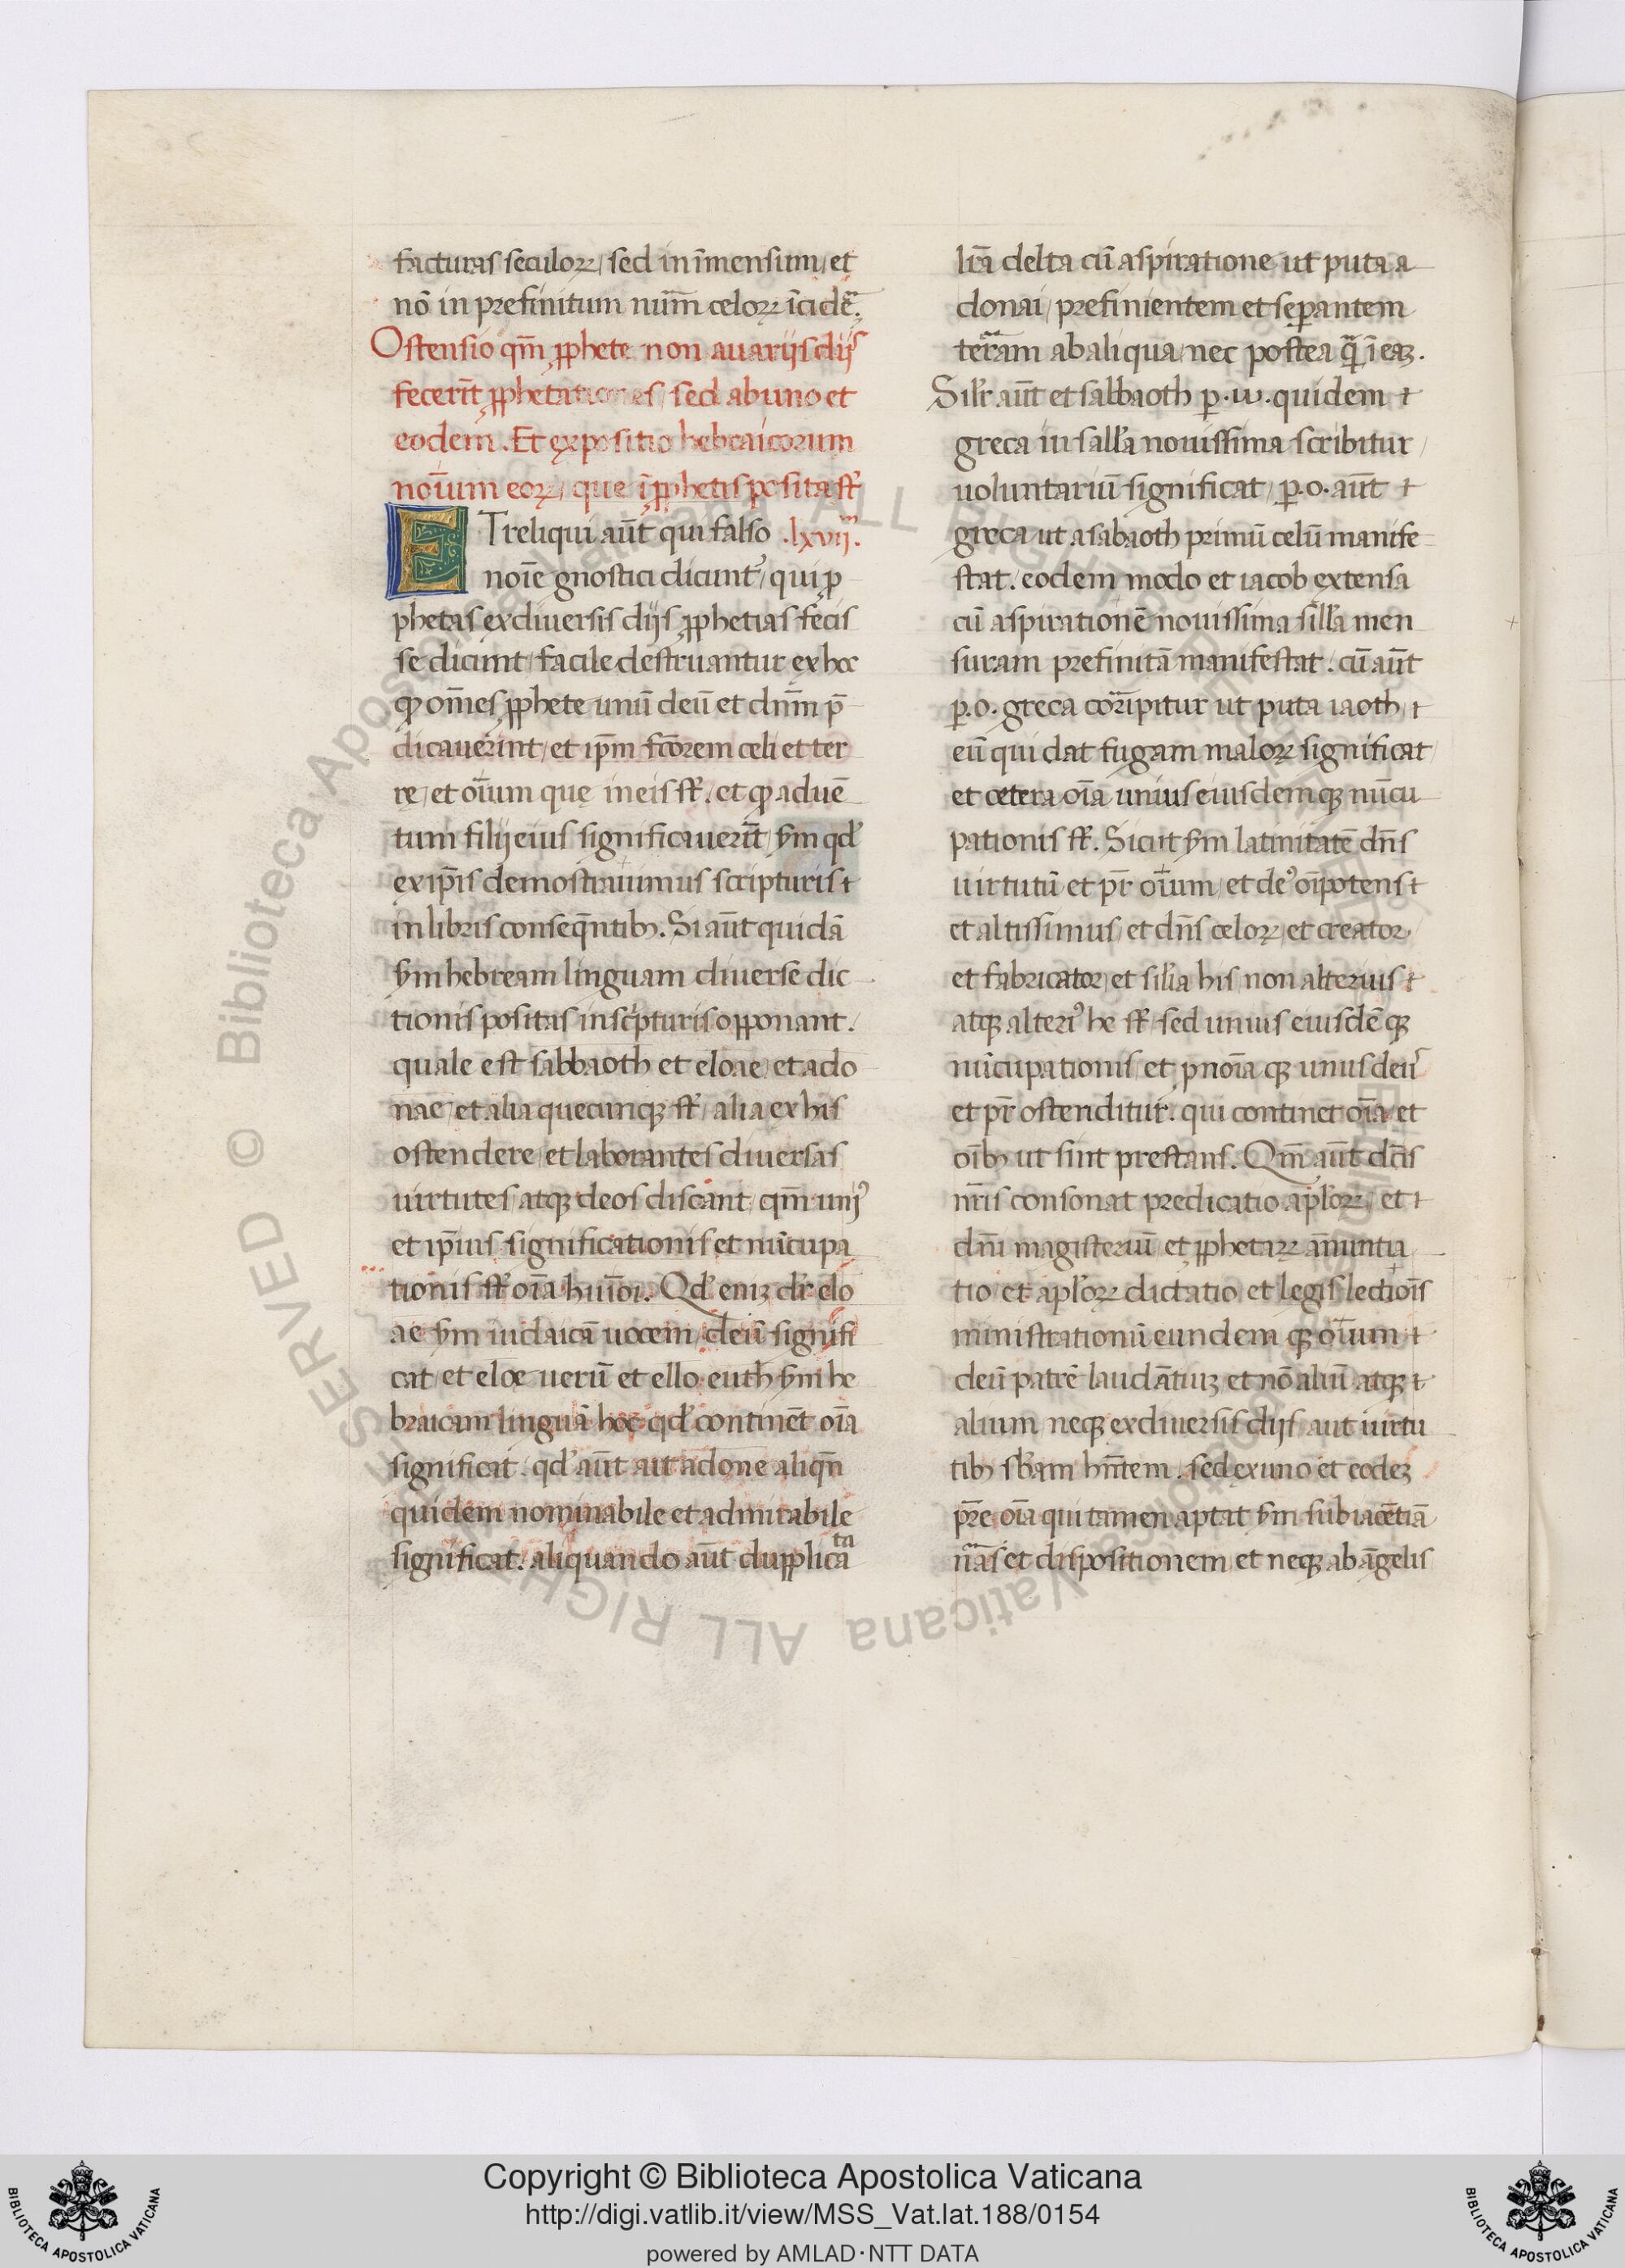 facturas seculoꝝ, sed in īmensum, et
nō in prefinitum num̄ celoꝝ īcidēt.
Ostensio qm̄ ꝓphete non a uarijs dijs
fecerīt ꝓphetationes, sed ab uno et
eodem. Et expositio hebraicorum
noīum eoꝝ, que ī ꝓphetis posita sr̄
ET reliqui aūt qui falso .lxvij.
noīe gnostici dicunt᷑, qui ꝓ
phetas ex diuersis dijs ꝓphetias fecis
se dicunt, facile destruantur ex hoc
ꝙ om̄es ꝓphete unū deū et dn̄m p̄
dicauerint, et ip̄m fc̄orem celi et ter
re, et oīum que in eis sr̄. et ꝙ aduē
tum filij eius significauerīt, s̄m qd̄
ex ip̄is demostrauimus scripturis
in libris conseqn̄tibꝫ. Si aūt quidā
s̄m hebream linguam diuerse dic
tionis positas in scripturis opponant.
quale est sabbaoth et eloae, et ado
nae, et alia quecunqꝫ sr̄, alia ex his
ostendere, et laborantes diuersas
uirtutes, atqꝫ deos discant, qm̄ uniꝰ
et ip̄ius significationis et nūcupa
tionis sr̄ oīa huiōi. Qd̄ enīꝫ dr̄ elo
ae s̄m iudaicā uocem, deū signifi
cat, et eloe uerū et ello euth s̄m he
braicam linguā hoc qd̄ continēt oīa
significat. qd̄ aūt aut adone aliqn̄
quidem nominabile et admirabile
significat. aliquando aūt dupplicata
lr̄a delta cū aspiratione ut puta a
donai, prefinientem et seꝑantem
terram ab aliqua, nec postea
Silr̄ aūt et sabbaoth ꝑ .ω. quidem
greca in sall̄a nouissima scribitur,
uoluntariū significat, ꝑ .o. aūt
greca ut a sabaoth primū celū manife
stat. eodem modo et iacob extensa
cū aspirationē nouissima sill̄a men
suram prefinitā manifestat. cū aūt
ꝑ .o. greca corripitur ut puta iaoth,
eū qui dat fugam maloꝝ significat
et cetera oīa unius eiusdemqꝫ nūcu
pationis sr̄. Sicut s̄m latinitatē dn̄s
uirtutū et pr̄ oīum, et deꝰ oīpotens
et altissimus, et dn̄s celoꝝ, et creator,
et fabricator, et sil̄ia his, non alterius
atqꝫ alteriꝰ he sr̄, sed unius eiusdēqꝫ
nūcupationis, et pnoīa qꝫ unus deus
et pr̄ ostenditur. qui continet oīa, et
oībꝫ ut sint prestans. Qm̄ aūt dc̄is
nr̄is consonat predicatio apl̄oꝝ, et
dn̄i magisteriū, et ꝓphetaꝝ ānuntia
tio et apl̄oꝝ dictatio, et legis lectiōis
ministrationū eundem qꝫ oīum
deū patrē laudātiuꝫ et nō aliū atqꝫ
alium, neqꝫ ex diuersis dijs, aut uirtu
tibꝫ sb̄am hn̄tem, sed ex uno et eodeꝫ
pr̄e oīa qui tamen aptat s̄m subiacētiā
nās et dispositionem, et neqꝫ ab āgelis
Copyright © Biblioteca Apostolica Vaticana
http://digi.vatlib.it/view/MSS_Vat.lat.188/0154
powered by AMLAD·NTT DATA